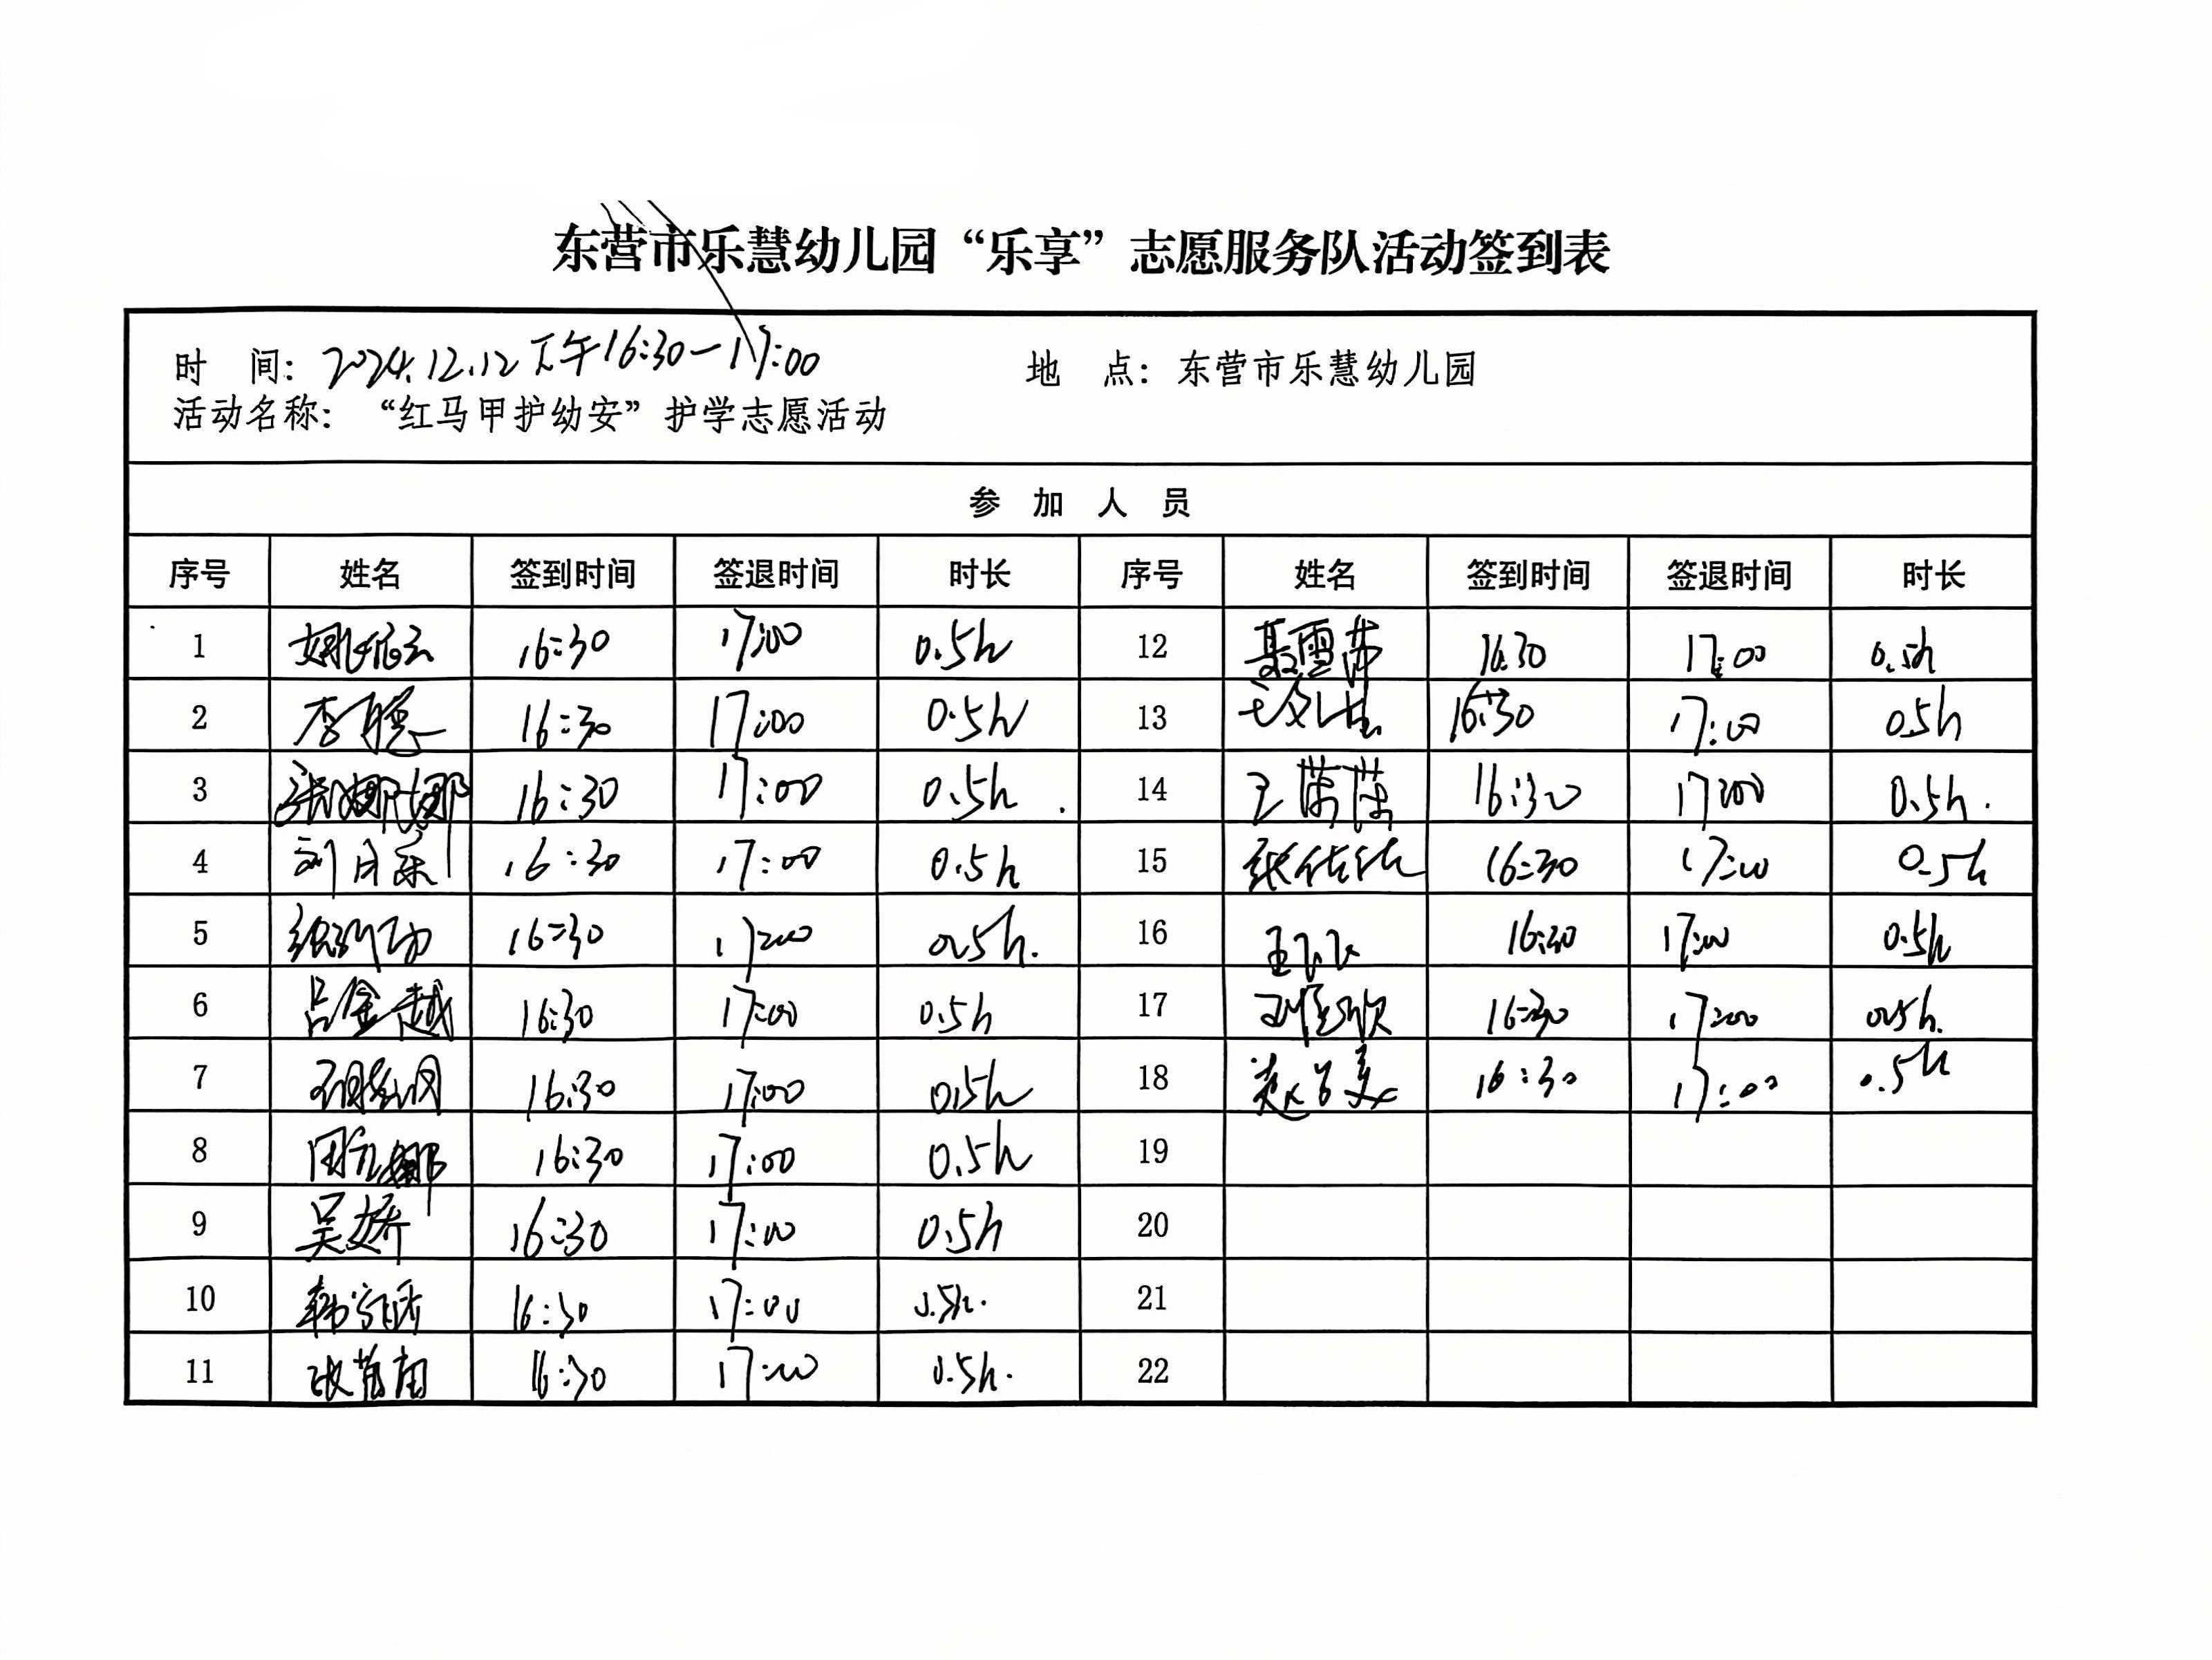 东营市乐慧幼儿园“乐享”志愿服务队活动签到表
时 间：2024.12.12 下午16:30—17:00 地 点：东营市乐慧幼儿园
活动名称：“红马甲护幼安”护学志愿活动
参 加 人 员
序号 姓名 签到时间 签退时间 时长 序号 姓名 签到时间 签退时间 时长
1 16:30 17:00 0.5h 12 聂雪莎 16:30 17:00 0.5h
2 李聪 16:30 17:00 0.5h 13 16:30 17:00 0.5h
3 张娜娜 16:30 17:00 0.5h 14 王蒙蒙 16:30 17:00 0.5h.
4 刘月乐 16:30 17:00 0.5h 15 张佳佳 16:30 17:00 0.5h
5 16:30 17:00 0.5h. 16 王飞飞 16:30 17:00 0.5h
6 吕金越 16:30 17:00 0.5h 17 16:30 17:00 0.5h.
7 16:30 17:00 0.5h 18 16:30 17:00 0.5h
8 16:30 17:00 0.5h 19
9 吴娇 16:30 17:00 0.5h 20
10 16:30 17:00 0.5h. 21
11 16:30 17:00 0.5h. 22